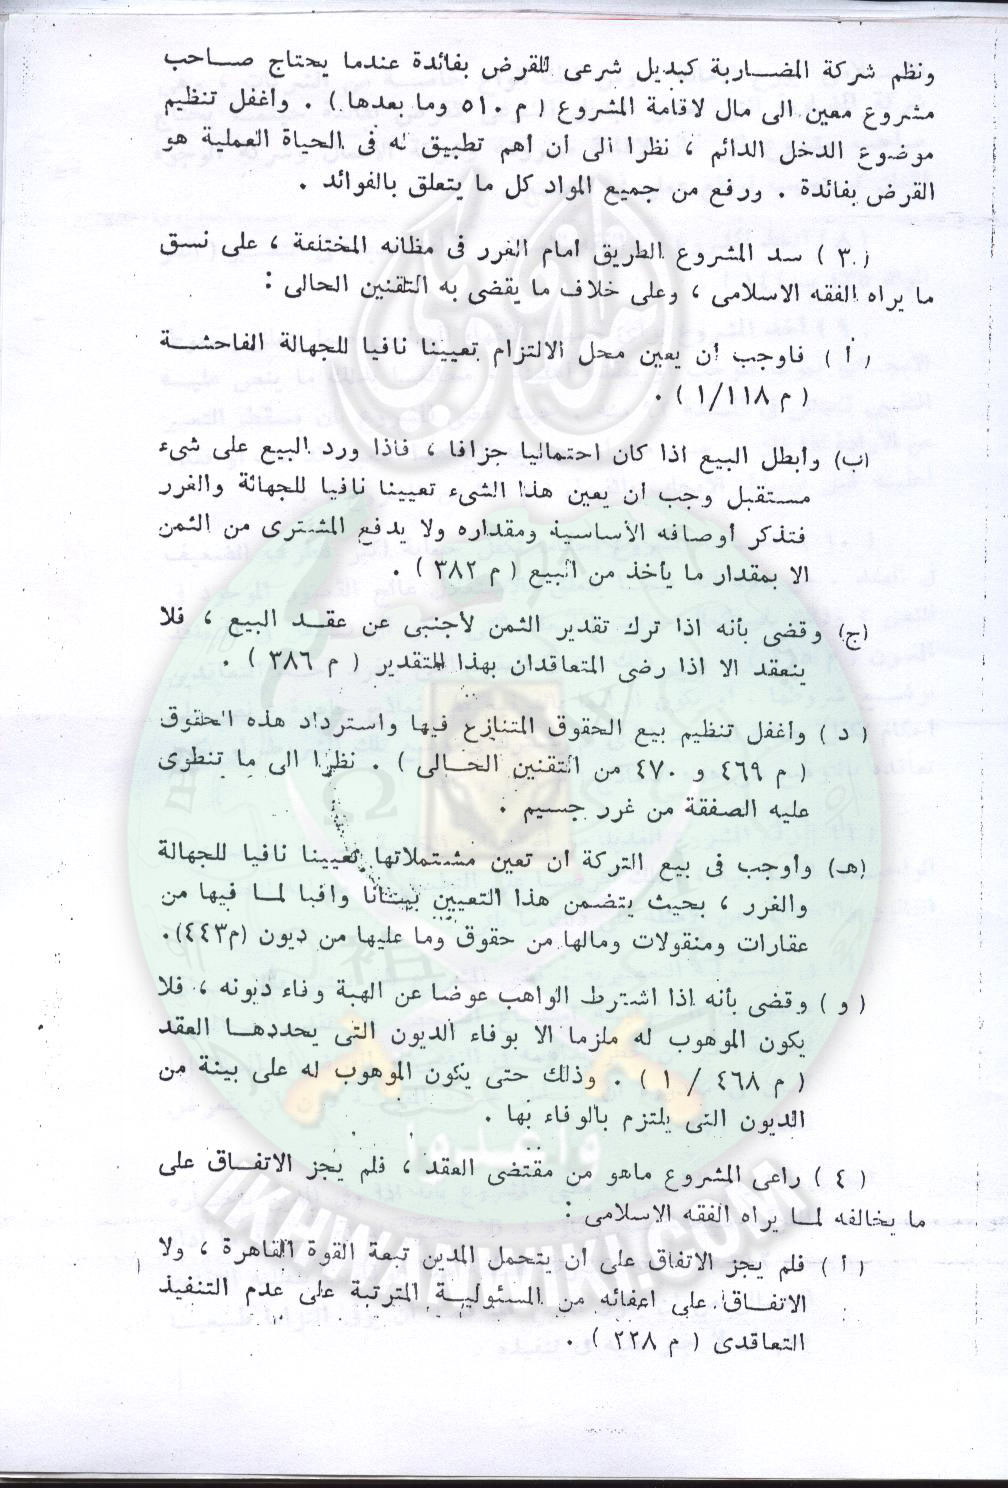 ونظم شركة المضاربة كبديل شرعى للقرض بفائدة عندما يحتاج صاحب
مشروع معين الى مال لاقامة المشروع ( م ٥١٠ وما بعدها ) . وأغفل تنظيم
موضوع الدخل الدائم ، نظرا الى أن أهم تطبيق له فى الحياة العملية هو
القرض بفائدة . ورفع من جميع المواد كل ما يتعلق بالفوائد .
( ٣ ) سد المشروع الطريق أمام الغرر فى مظانه المختلفة ، على نسق
ما يراه الفقه الاسلامى ، وعلى خلاف ما يقضى به التقنين الحالى :
( أ ) فاوجب أن يعين محل الالتزام تعيينا نافيا للجهالة الفاحشة
( م ١/١١٨ ) .
(ب) وأبطل البيع اذا كان احتماليا جزافا ، فاذا ورد البيع على شىء
مستقبل وجب أن يعين هذا الشىء تعيينا نافيا للجهالة والغرر
فتذكر أوصافه الأساسية ومقداره ولا يدفع المشترى من الثمن
الا بمقدار ما يأخذ من البيع ( م ٣٨٢ ) .
(ج) وقضى بأنه اذا ترك تقدير الثمن لأجنبى عن عقد البيع ، فلا
ينعقد الا اذا رضى المتعاقدان بهذا التقدير ( م ٣٨٦ ) .
( د ) وأغفل تنظيم بيع الحقوق المتنازع فيها واسترداد هذه الحقوق
( م ٤٦٩ و ٤٧٠ من التقنين الحالى ) . نظرا الى ما تنطوى
عليه الصفقة من غرر جسيم .
(هـ) وأوجب فى بيع التركة أن تعين مشتملاتها تعيينا نافيا للجهالة
والغرر ، بحيث يتضمن هذا التعيين بيانا وافيا لما فيها من
عقارات ومنقولات ومالها من حقوق وما عليها من ديون (م٤٤٣).
( و ) وقضى بأنه اذا اشترط الواهب عوضا عن الهبة وفاء ديونه ، فلا
يكون الموهوب له ملزما الا بوفاء الديون التى يحددها العقد
( م ٤٦٨ / ١ ) . وذلك حتى يكون الموهوب له على بينة من
الديون التى يلتزم بالوفاء بها .
( ٤ ) راعى المشروع ماهو من مقتضى العقد ، فلم يجز الاتفاق على
ما يخالفه لما يراه الفقه الاسلامى :
( أ ) فلم يجز الاتفاق على أن يتحمل المدين تبعة القوة القاهرة ، ولا
الاتفاق على اعفائه من المسئولية المترتبة على عدم التنفيذ
التعاقدى ( م ٢٢٨ ) .
وأعدوا
IKHWANWIKI.COM